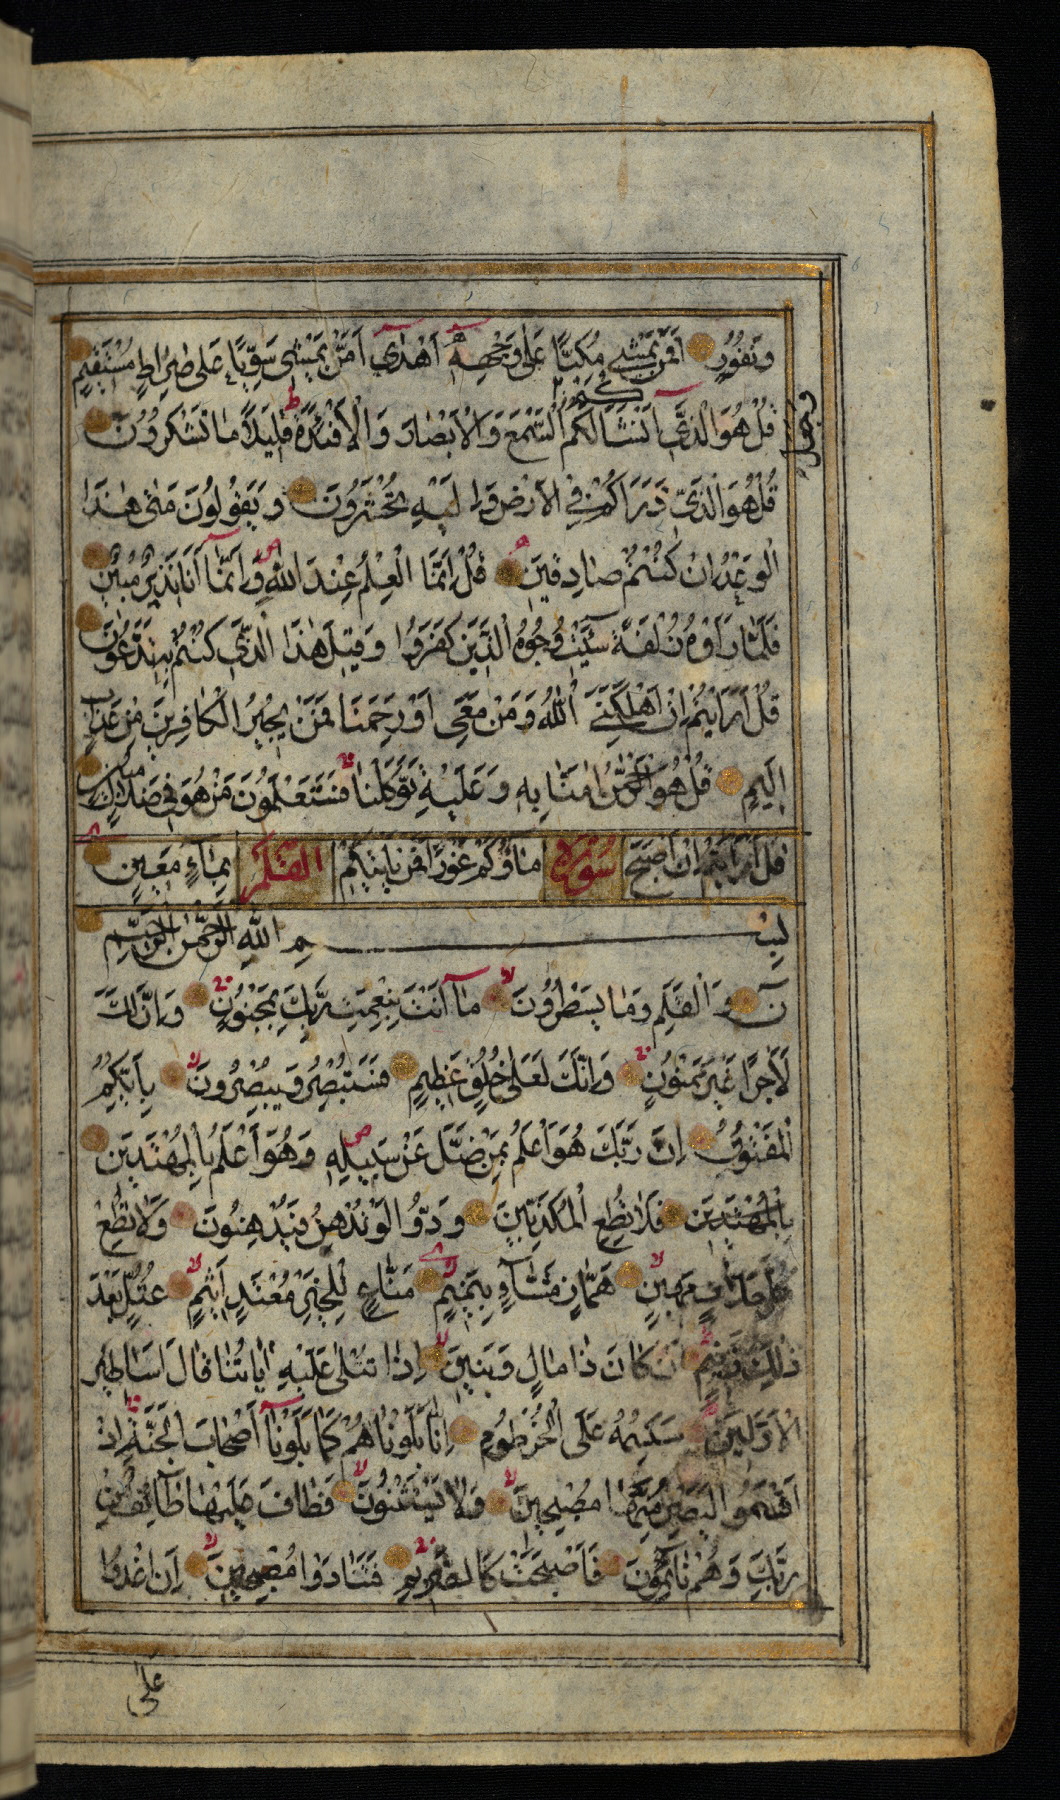 وَنُفُورٍ اَفَمَنْ يَمْشِي مُكِبًّا عَلٰى وَجْهِهِ اَهْدٰى اَمَّنْ يَمْشِي سَوِيًّا عَلٰى صِرَاطٍ مُسْتَقِيمٍ
قُلْ هُوَ الَّذِي اَنْشَاَ لَكُمُ السَّمْعَ وَالْاَبْصَارَ وَالْاَفْئِدَةَ قَلِيلًا مَا تَشْكُرُونَ
وجعل لكم
قُلْ هُوَ الَّذِي ذَرَاَكُمْ فِي الْاَرْضِ وَاِلَيْهِ تُحْشَرُونَ وَيَقُولُونَ مَتٰى هٰذَا
الْوَعْدُ اِنْ كُنْتُمْ صَادِقِينَ قُلْ اِنَّمَا الْعِلْمُ عِنْدَ اللّٰهِ وَاِنَّمَا اَنَا نَذِيرٌ مُبِينٌ
فَلَمَّا رَاَوْهُ زُلْفَةً سِيئَتْ وُجُوهُ الَّذِينَ كَفَرُوا وَقِيلَ هٰذَا الَّذِي كُنْتُمْ بِهِ تَدَّعُونَ
قُلْ اَرَاَيْتُمْ اِنْ اَهْلَكَنِيَ اللّٰهُ وَمَنْ مَعِيَ اَوْ رَحِمَنَا فَمَنْ يُجِيرُ الْكَافِرِينَ مِنْ عَذَابٍ
اَلِيمٍ قُلْ هُوَ الرَّحْمٰنُ اٰمَنَّا بِهِ وَعَلَيْهِ تَوَكَّلْنَا فَسَتَعْلَمُونَ مَنْ هُوَ فِي ضَلَالٍ مُبِينٍ
قُلْ اَرَاَيْتُمْ اِنْ اَصْبَحَ سُورَة مَاؤُكُمْ غَوْرًا فَمَنْ يَاْتِيكُمْ القلم بِمَاءٍ مَعِينٍ
بِسْمِ اللّٰهِ الرَّحْمٰنِ الرَّحِيمِ
نۤ وَالْقَلَمِ وَمَا يَسْطُرُونَ مَا اَنْتَ بِنِعْمَةِ رَبِّكَ بِمَجْنُونٍ وَاِنَّ لَكَ
لَاَجْرًا غَيْرَ مَمْنُونٍ وَاِنَّكَ لَعَلٰى خُلُقٍ عَظِيمٍ فَسَتُبْصِرُ وَيُبْصِرُونَ بِاَيِّكُمُ
الْمَفْتُونُ اِنَّ رَبَّكَ هُوَ اَعْلَمُ بِمَنْ ضَلَّ عَنْ سَبِيلِهِ وَهُوَ اَعْلَمُ بِالْمُهْتَدِينَ
بِالْمُهْتَدِينَ فَلَا تُطِعِ الْمُكَذِّبِينَ وَدُّوا لَوْ تُدْهِنُ فَيُدْهِنُونَ وَلَا تُطِعْ
كُلَّ حَلَّافٍ مَهِينٍ هَمَّازٍ مَشَّاءٍ بِنَمِيمٍ مَنَّاعٍ لِلْخَيْرِ مُعْتَدٍ اَثِيمٍ عُتُلٍّ بَعْدَ
ذٰلِكَ زَنِيمٍ اَنْ كَانَ ذَا مَالٍ وَبَنِينَ اِذَا تُتْلٰى عَلَيْهِ اٰيَاتُنَا قَالَ اَسَاطِيرُ
الْاَوَّلِينَ سَنَسِمُهُ عَلَى الْخُرْطُومِ اِنَّا بَلَوْنَاهُمْ كَمَا بَلَوْنَا اَصْحَابَ الْجَنَّةِ اِذْ
اَقْسَمُوا لَيَصْرِمُنَّهَا مُصْبِحِينَ وَلَا يَسْتَثْنُونَ فَطَافَ عَلَيْهَا طَائِفٌ مِنْ
رَبِّكَ وَهُمْ نَائِمُونَ فَاَصْبَحَتْ كَالصَّرِيمِ فَتَنَادَوْا مُصْبِحِينَ اَنِ اغْدُوا
عَلٰى